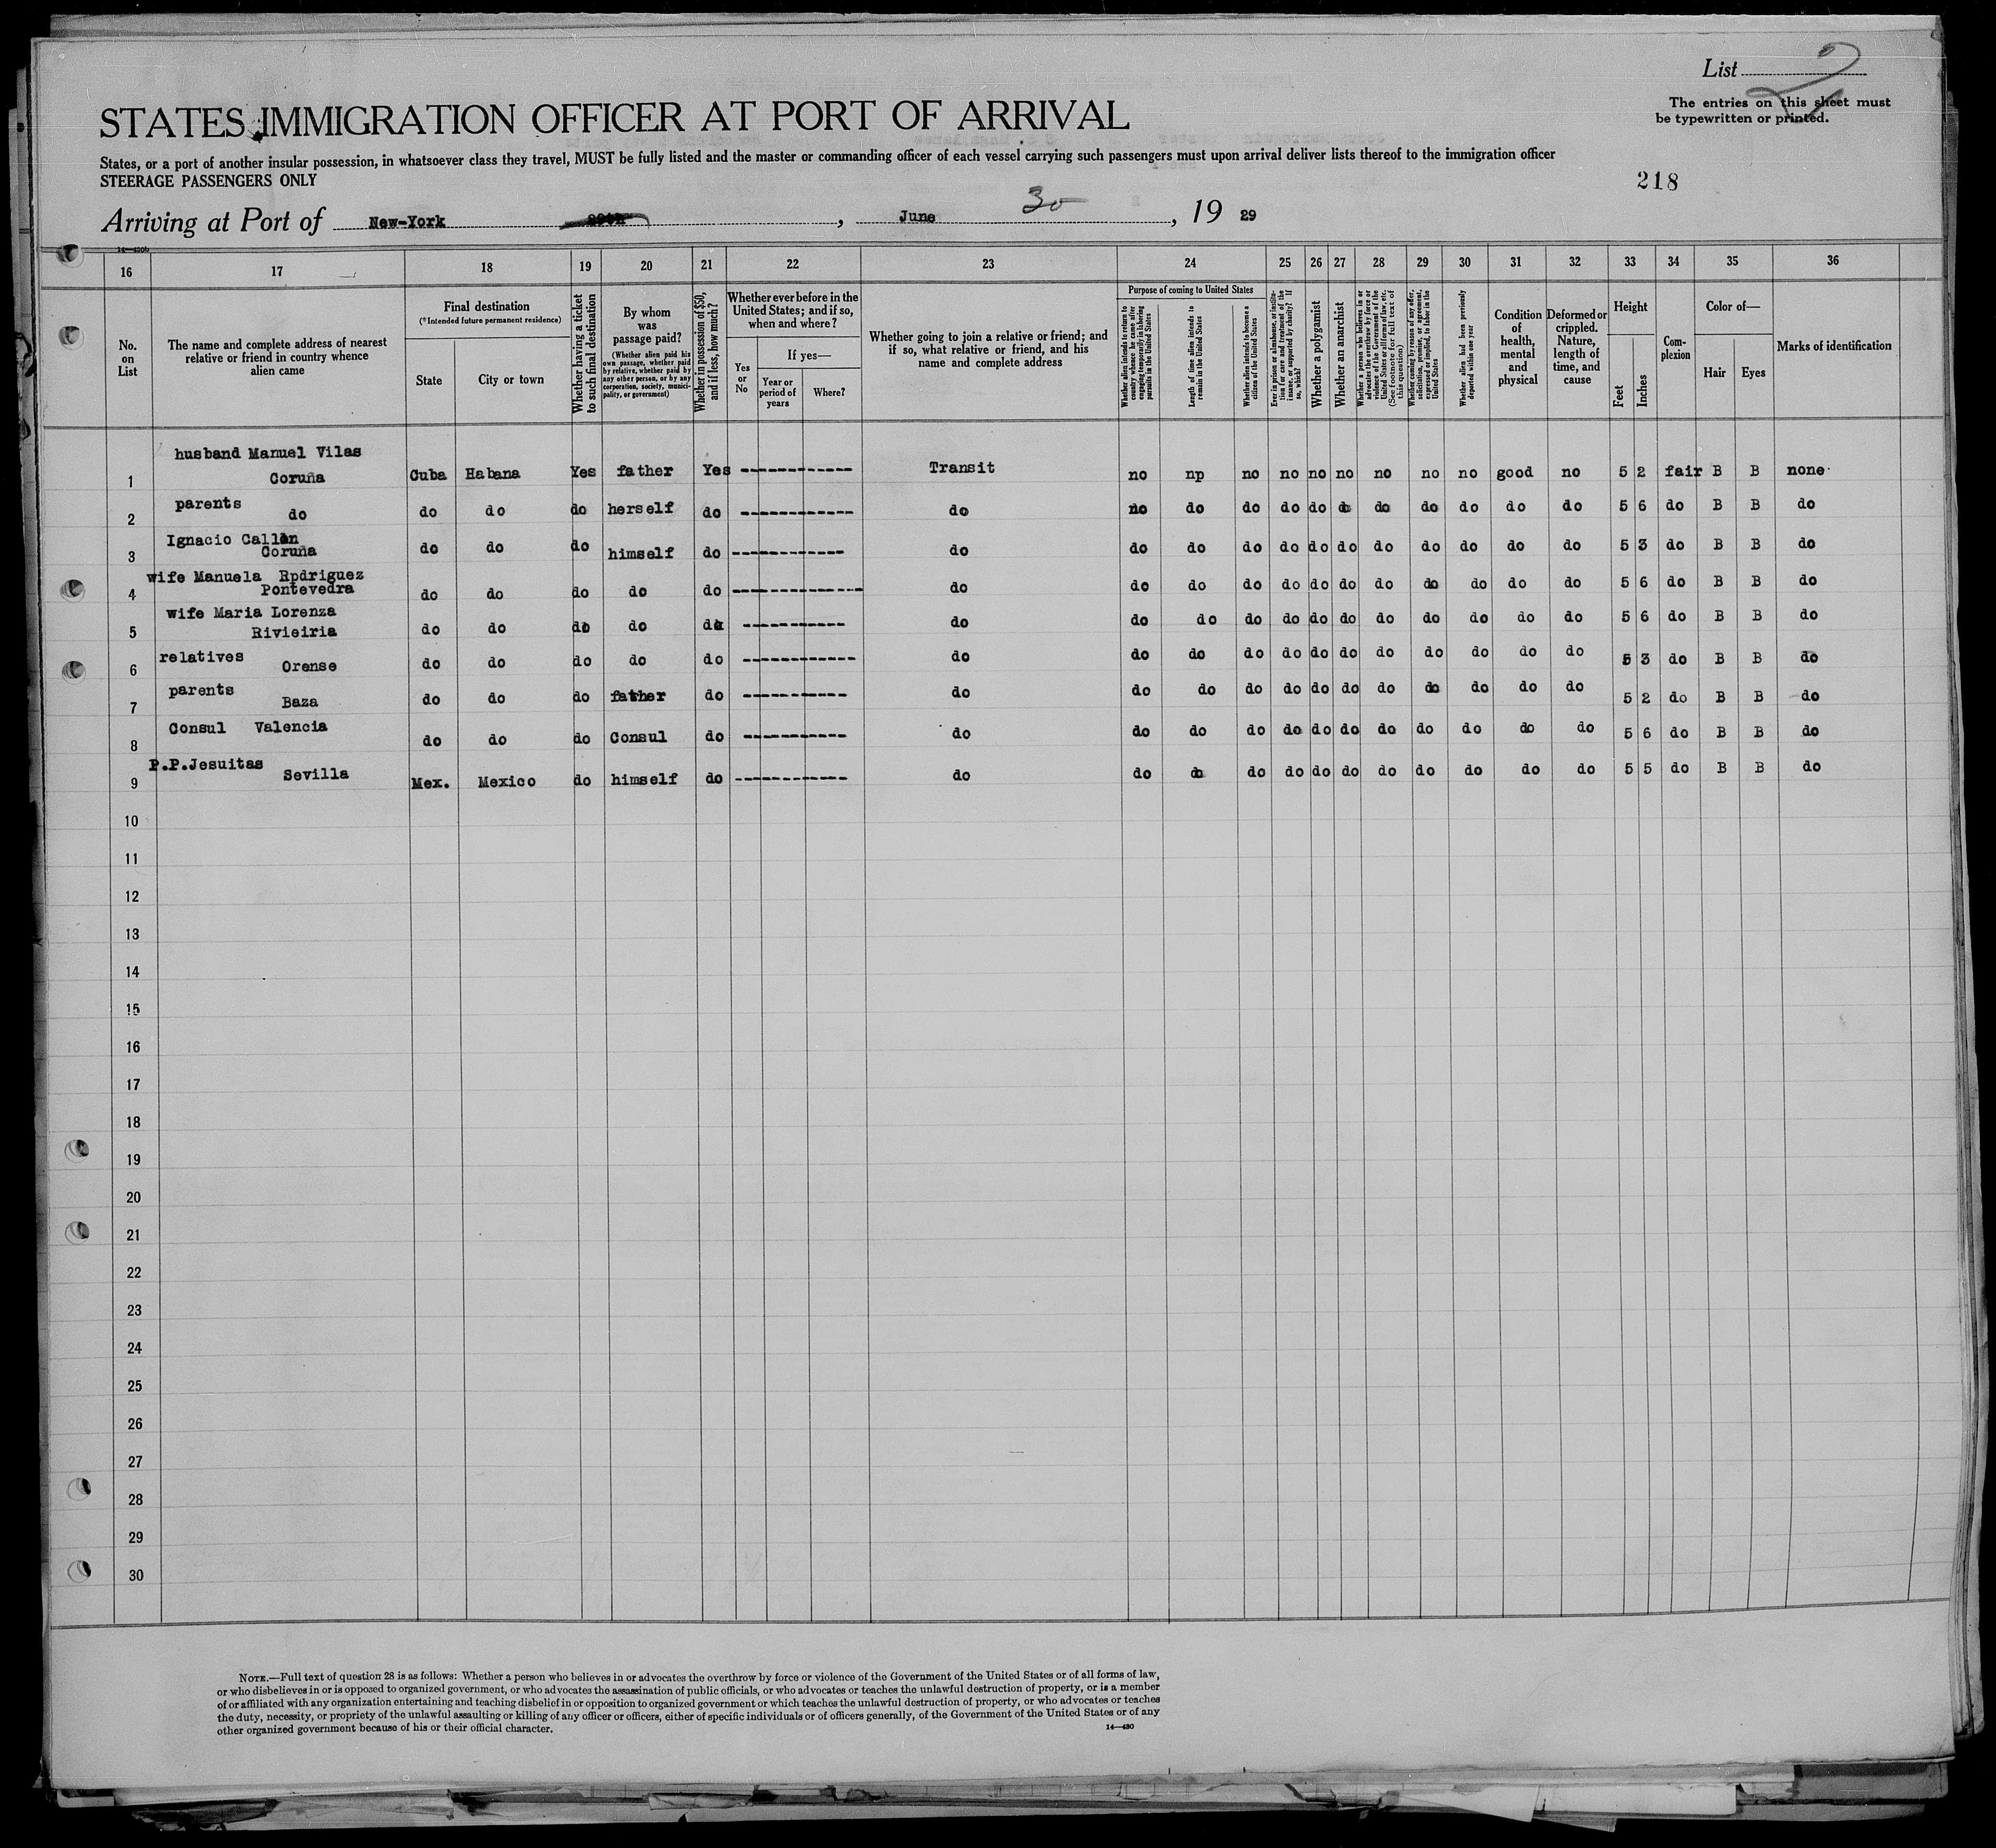 List 2
The entries on this sheet must
be typewritten or printed.
STATES IMMIGRATION OFFICER AT PORT OF ARRIVAL
States, or a port of another insular possession, in whatsoever class they travel, MUST be fully listed and the master or commanding officer of each vessel carrying such passengers must upon arrival deliver lists thereof to the immigration officer
STEERAGE PASSENGERS ONLY
218
Arriving at Port of New-York 29th, June 30, 19 29
14—430b
16 17 18 19 20 21 22 23 24 25 26 27 28 29 30 31 32 33 34 35 36
No. on List
The name and complete address of nearest relative or friend in country whence alien came
Final destination
(*Intended future permanent residence)
State
City or town
Whether having a ticket to such final destination
By whom was passage paid?
(Whether alien paid his own passage, whether paid by relative, whether paid by any other person, or by any corporation, society, municipality, or government)
Whether in possession of $50, and if less, how much?
Whether ever before in the United States; and if so, when and where?
Yes or No
If yes—
Year or period of years
Where?
Whether going to join a relative or friend; and if so, what relative or friend, and his name and complete address
Purpose of coming to United States
Whether alien intends to return to country whence he came after engaging temporarily in laboring pursuits in the United States
Length of time alien intends to remain in the United States
Whether alien intends to become a citizen of the United States
Ever in prison or almshouse, or institution for care and treatment of the insane, or supported by charity? If so, which?
Whether a polygamist
Whether an anarchist
Whether a person who believes in or advocates the overthrow by force or violence of the Government of the United States or all forms of law, etc. (See footnote for full text of this question)
Whether coming by reason of any offer, solicitation, promise, or agreement, expressed or implied, to labor in the United States
Whether alien had been previously deported within one year
Condition of health, mental and physical
Deformed or crippled. Nature, length of time, and cause
Height
Feet
Inches
Complexion
Color of—
Hair
Eyes
Marks of identification
1 husband Manuel Vilas Coruña Cuba Habana Yes father Yes ------------ Transit no np no no no no no no no good no 5 2 fair B B none
2 parents do do do do herself do ------------ do no do do do do do do do do do do 5 6 do B B do
3 Ignacio Callon Coruña do do do himself do ------------ do do do do do do do do do do do do 5 3 do B B do
4 wife Manuela Rpdriguez Pontevedra do do do do do ------------ do do do do do do do do do do do do 5 6 do B B do
5 wife Maria Lorenza Rivieiria do do do do do ------------ do do do do do do do do do do do do 5 6 do B B do
6 relatives Orense do do do do do ------------ do do do do do do do do do do do do 5 3 do B B do
7 parents Baza do do do father do ------------ do do do do do do do do do do do do 5 2 do B B do
8 Consul Valencia do do do Consul do ------------ do do do do do do do do do do do do 5 6 do B B do
9 P.P.Jesuitas Sevilla Mex. Mexico do himself do ------------ do do do do do do do do do do do do 5 5 do B B do
10
11
12
13
14
15
16
17
18
19
20
21
22
23
24
25
26
27
28
29
30
NOTE.—Full text of question 28 is as follows: Whether a person who believes in or advocates the overthrow by force or violence of the Government of the United States or of all forms of law,
or who disbelieves in or is opposed to organized government, or who advocates the assassination of public officials, or who advocates or teaches the unlawful destruction of property, or is a member
of or affiliated with any organization entertaining and teaching disbelief in or opposition to organized government or which teaches the unlawful destruction of property, or who advocates or teaches
the duty, necessity, or propriety of the unlawful assaulting or killing of any officer or officers, either of specific individuals or of officers generally, of the Government of the United States or of any
other organized government because of his or their official character.
14—430